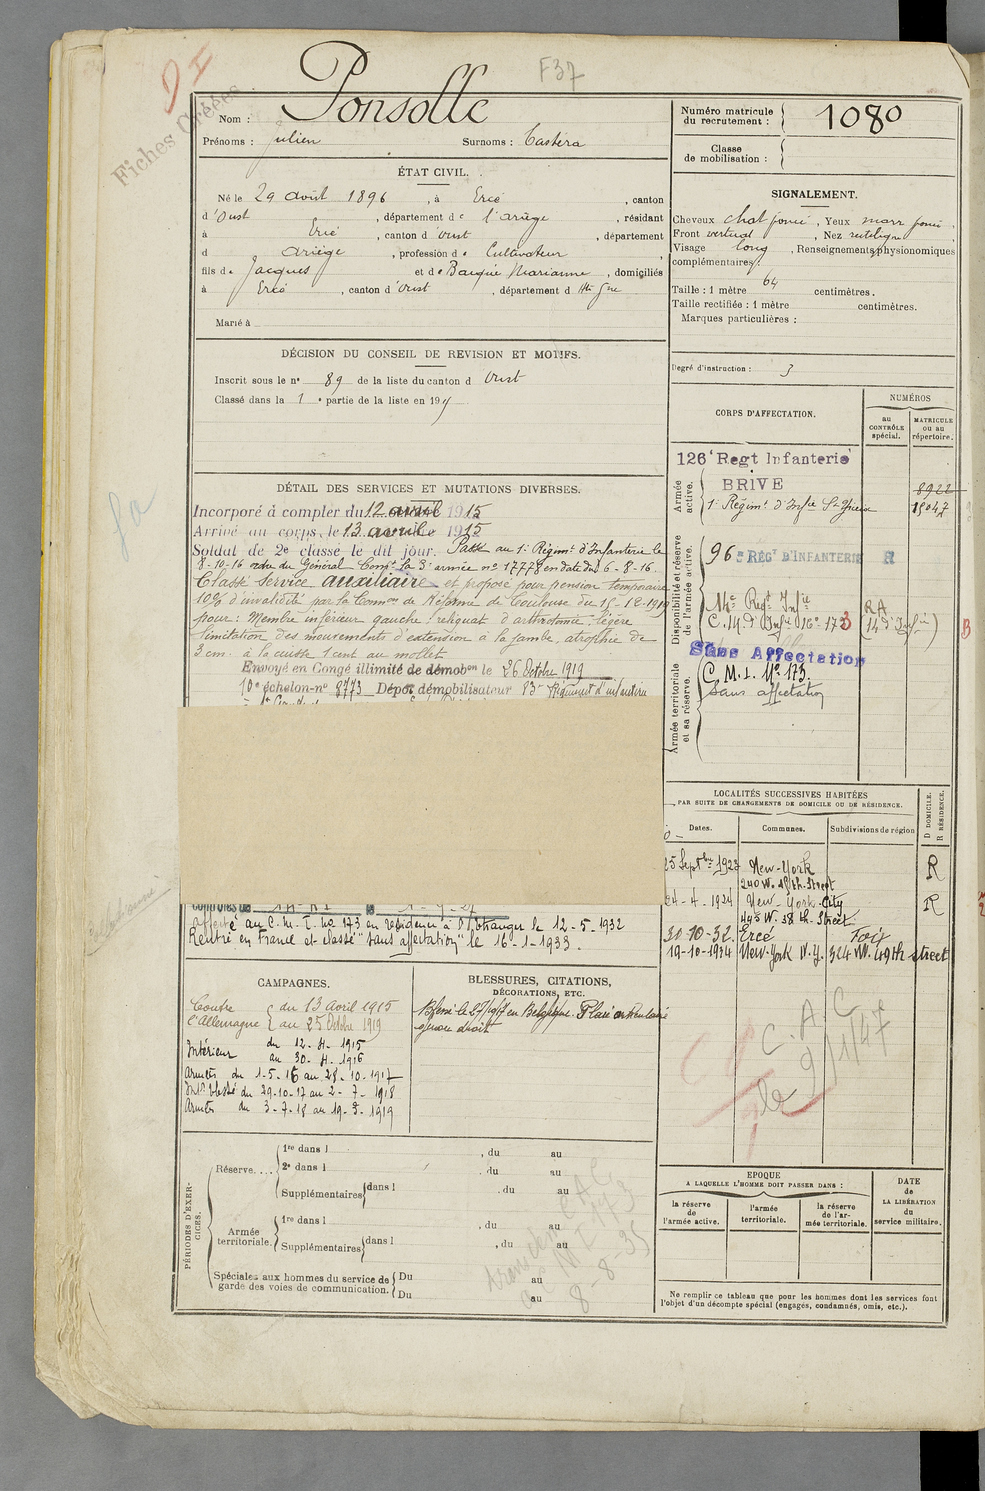 D I
Fiches Créées
F37
Nom : Ponsolle
Prénoms : Julien Surnoms : Castéra
Numéro matricule du recrutement : 1080
Classe de mobilisation :
ÉTAT CIVIL.
Né le 29 août 1896, à Ercé, canton
d'Oust, département de l'ariège, résidant
à Ercé, canton d'oust, département
d ariège, profession de Cultivateur,
fils de Jacques et de Marianne, domiciliés
à Ercé, canton d'Oust, département d
Marié à
SIGNALEMENT.
Cheveux chat foncé, Yeux marr foncé.
Front vertical, Nez rectiligne
Visage long, Renseignements physionomiques
complémentaires :
Taille : 1 mètre 64 centimètres.
Taille rectifiée : 1 mètre centimètres.
Marques particulières :
Degré d'instruction : 3
DÉCISION DU CONSEIL DE REVISION ET MOTIFS.
Inscrit sous le nº 89 de la liste du canton d Oust
Classé dans la 1e partie de la liste en 191
DÉTAIL DES SERVICES ET MUTATIONS DIVERSES.
Incorporé à compter du 12 avril 1915
Arrivé au corps, le 13 avril 1915
Soldat de 2e classe le dit jour. Passé au 1er Régimt d'Infanterie le
8-10-16 ordre du Général Comdt la 3e armée nº 17778 en date du 6-8-16.
Classé Service auxiliaire et proposé pour pension temporaire
10% d'invalidité par la Common de Réforme de Toulouse du 15-12-1919
pour : Membre inférieur gauche : reliquat d'arthrotomie : légère
limitation des mouvements d'extension à la jambe, atrophie de
3 cm. à la cuisse 1 cent au mollet
Envoyé en Congé illimité de démobon le 26 Octobre 1919
10e échelon nº 8773 Dépôt démobilisateur 83e Régiment d'infanterie
contrôles de
affecté au C.M.I. no 173 en résidence à l'étranger le 12-5-1932
Rentré en France et classé "sans affectation" le 16-1-1933.
CORPS D'AFFECTATION.
NUMÉROS
au CONTRÔLE spécial.
MATRICULE ou au répertoire.
Armée active.
126e Regt Infanterie
BRIVE 8922
1er Régimt d'Infie 15047
Disponibilité et réserve de l'armée active.
96e RÉGT D'INFANTERIE R
14e Regt Infie RA
C.M. d'Infie 16e-173 (14 d'Infie)
B
Sans Affectation
Armée territoriale et sa réserve.
C.M.I. Nº 173.
Sans affectation
LOCALITÉS SUCCESSIVES HABITÉES
PAR SUITE DE CHANGEMENTS DE DOMICILE OU DE RÉSIDENCE.
Dates. Communes. Subdivisions de région
D DOMICILE. R RÉSIDENCE.
New-York R
240 W. Street
4-4-1924 New-York-City R
W. 38 th-Street
30-10-32. Ercé Foix
19-10-1934 New-York N.Y. 324 W. 49th street
C.A.C
le 9/1/47
CAMPAGNES.
Contre l'Allemagne { du 13 avril 1915
au 25 Octobre 1919
Intérieur du 12-4-1915
au 30-4-1916
Armées du 1-5-16 au 28-10-1917
Intr blessé du 29-10-17 au 2-7-1918
Armées du 3-7-18 au
BLESSURES, CITATIONS, DÉCORATIONS, ETC.
Blessé le en Belgique. Plaie articulaire
genou droit
PÉRIODES D'EXERCICES.
Réserve.... 1re dans l , du au
2e dans l , du au
Supplémentaires dans l , du au
Armée territoriale. 1re dans l , du au
Supplémentaires dans l , du au
Spéciales aux hommes du service de garde des voies de communication. Du au
Du au
8-8-35
EPOQUE
A LAQUELLE L'HOMME DOIT PASSER DANS :
la réserve de l'armée active.
l'armée territoriale.
la réserve de l'armée territoriale.
DATE de LA LIBÉRATION du service militaire.
Ne remplir ce tableau que pour les hommes dont les services font
l'objet d'un décompte spécial (engagés, condamnés, omis, etc.).